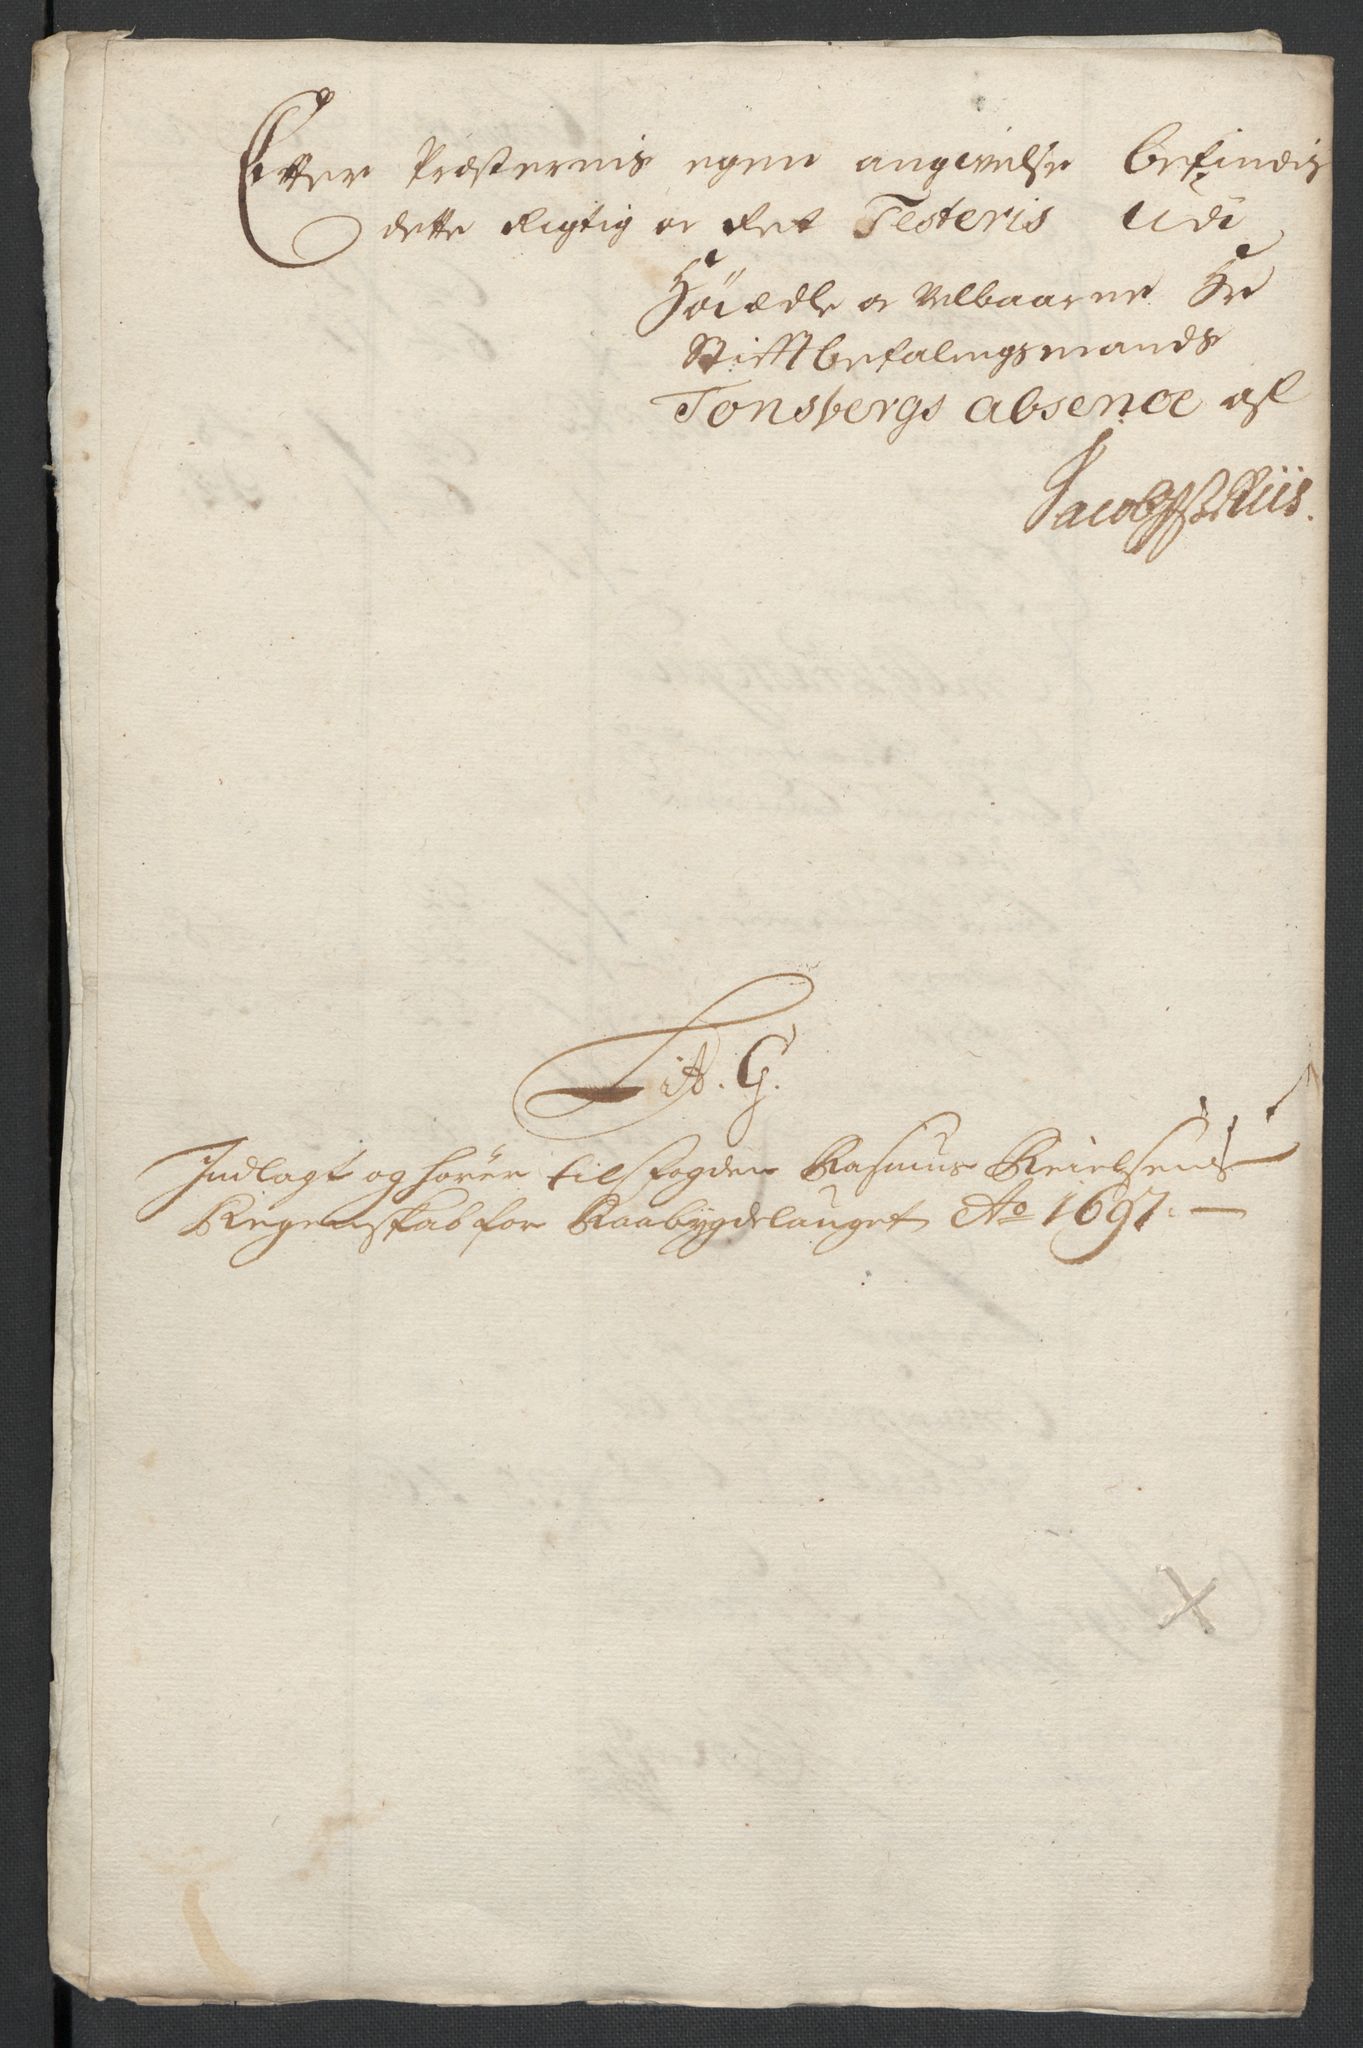 Efter Præsternis egen angivelse befindis
dette Rigtig oc det Testeris Udi
Høiædle oc Velbaarne Hr
Stifftbefalingsmands
Tonsbergs absence af
Jacob Riis.
Lit. G.
Indlagt og hører til Fogden Rasmus Keielsens
Regenskab for Raabygdelauget Ao 1697. —